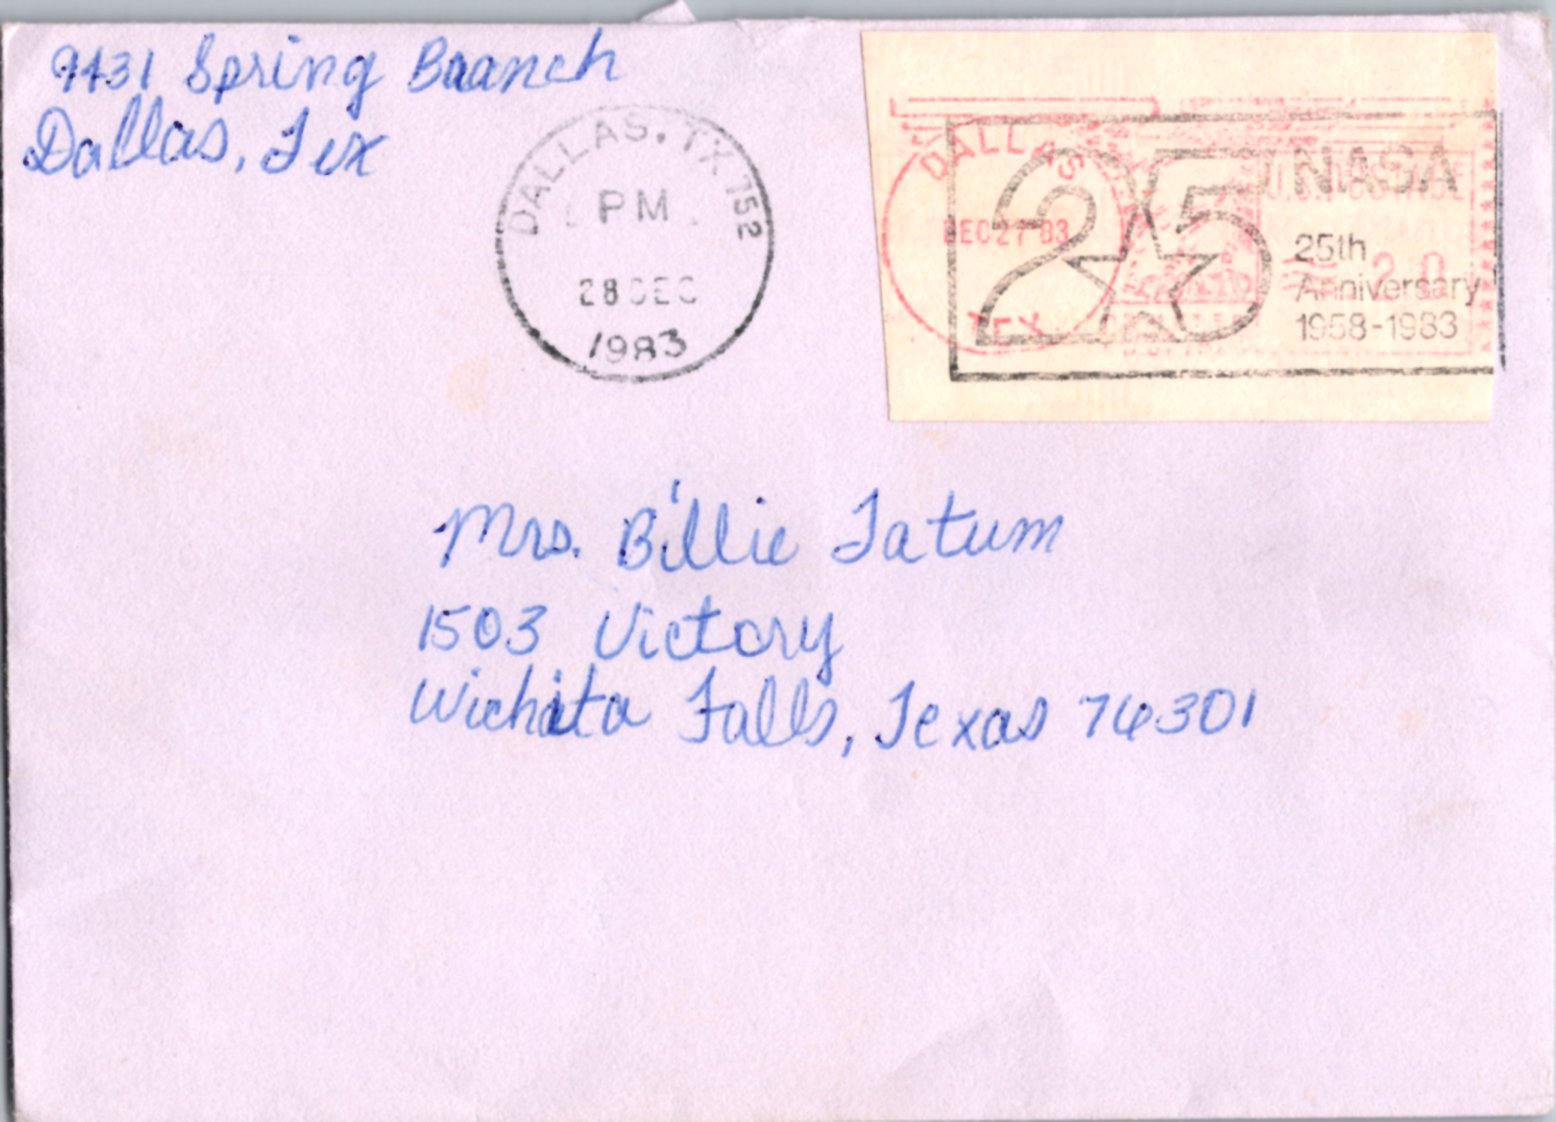 9431 Spring Branch
Dallas, Tex
DALLAS, TX 752
PM
28 DEC
1983
DALLAS
DEC 27 83
TEX
U.S. POSTAGE
20
25
NASA
25th
Anniversary
1958-1983
Mrs. Billie Tatum
1503 Victory
Wichita Falls, Texas 76301